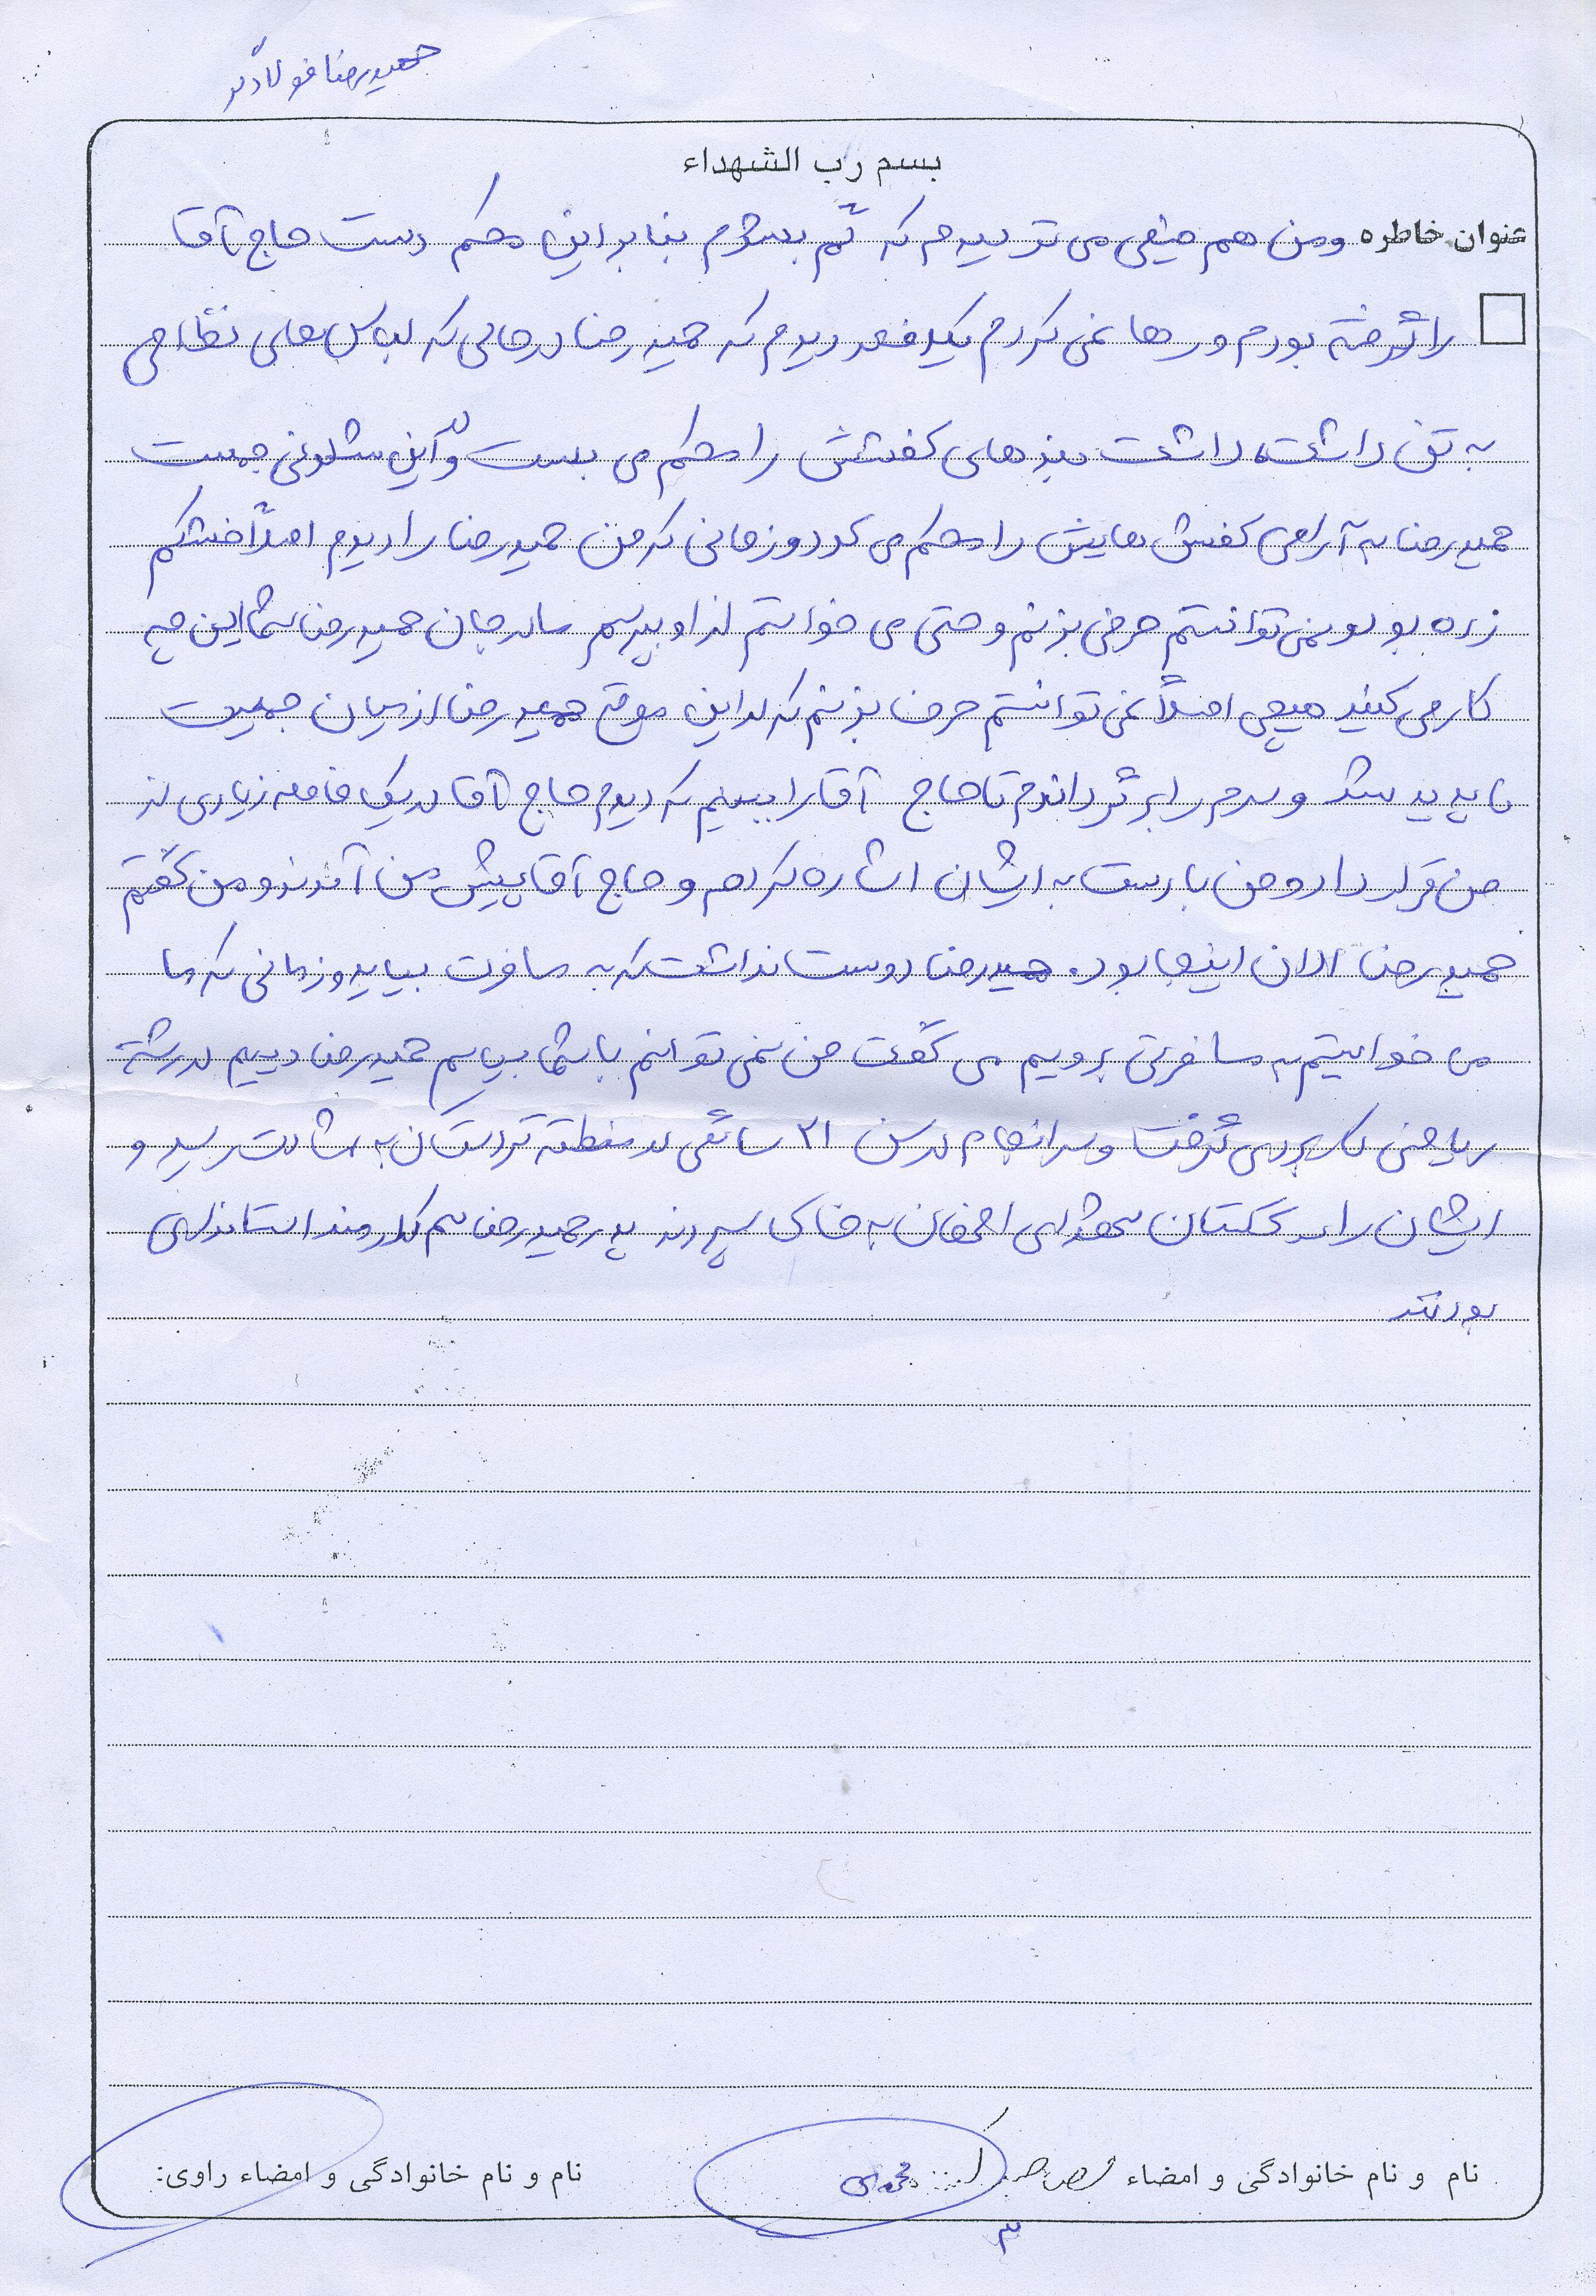 حمیدرضا فولادگر
بسم رب الشهداء
عنوان خاطره ومن هم خیلی می ترسیدم که گم بشوم بنابراین محکم دست حاج آقا
را گرفته بودم و رها نمی کردم یکدفعه دیدم که حمیدرضا در حالی که لباس های نظامی
به تن داشت، داشت بندهای کفشش را محکم می بست و در آن شلوغی جمعیت
حمیدرضا به آرامی کفش هایش را محکم می کرد و زمانی که من حمیدرضا را دیدم اصلاً خشکم
زده بود و نمی توانستم حرفی بزنم و حتی می خواستم از او بپرسم مادر جان حمیدرضا شما این چه
کار می کنید هیچی اصلاً نمی توانستم حرف بزنم که در این موقع حمیدرضا از میان جمعیت
ناپدید شد و سرم را برگرداندم تا حاج آقا را ببینم که دیدم حاج آقا در یک فاصله زیادی از
من قرار دارد و من با دست به ایشان اشاره کردم و حاج آقا پیش من آمدند و من گفتم
حمیدرضا الان اینجا بود. حمیدرضا دوست نداشت که به مسافرت بیاید و زمانی که ما
می خواستیم به مسافرتی برویم می گفت من نمی توانم با شما بیایم حمیدرضا دیپلم در رشته
ریاضی کاربردی گرفت و سرانجام در سن ۲۱ سالگی در منطقه کردستان به شهادت رسید و
ایشان را در گلستان شهدای اصفهان به خاک سپردند پدر حمیدرضا هم کارمند استانداری
بودند
نام و نام خانوادگی و امضاء
نام و نام خانوادگی و امضاء راوی:
۳